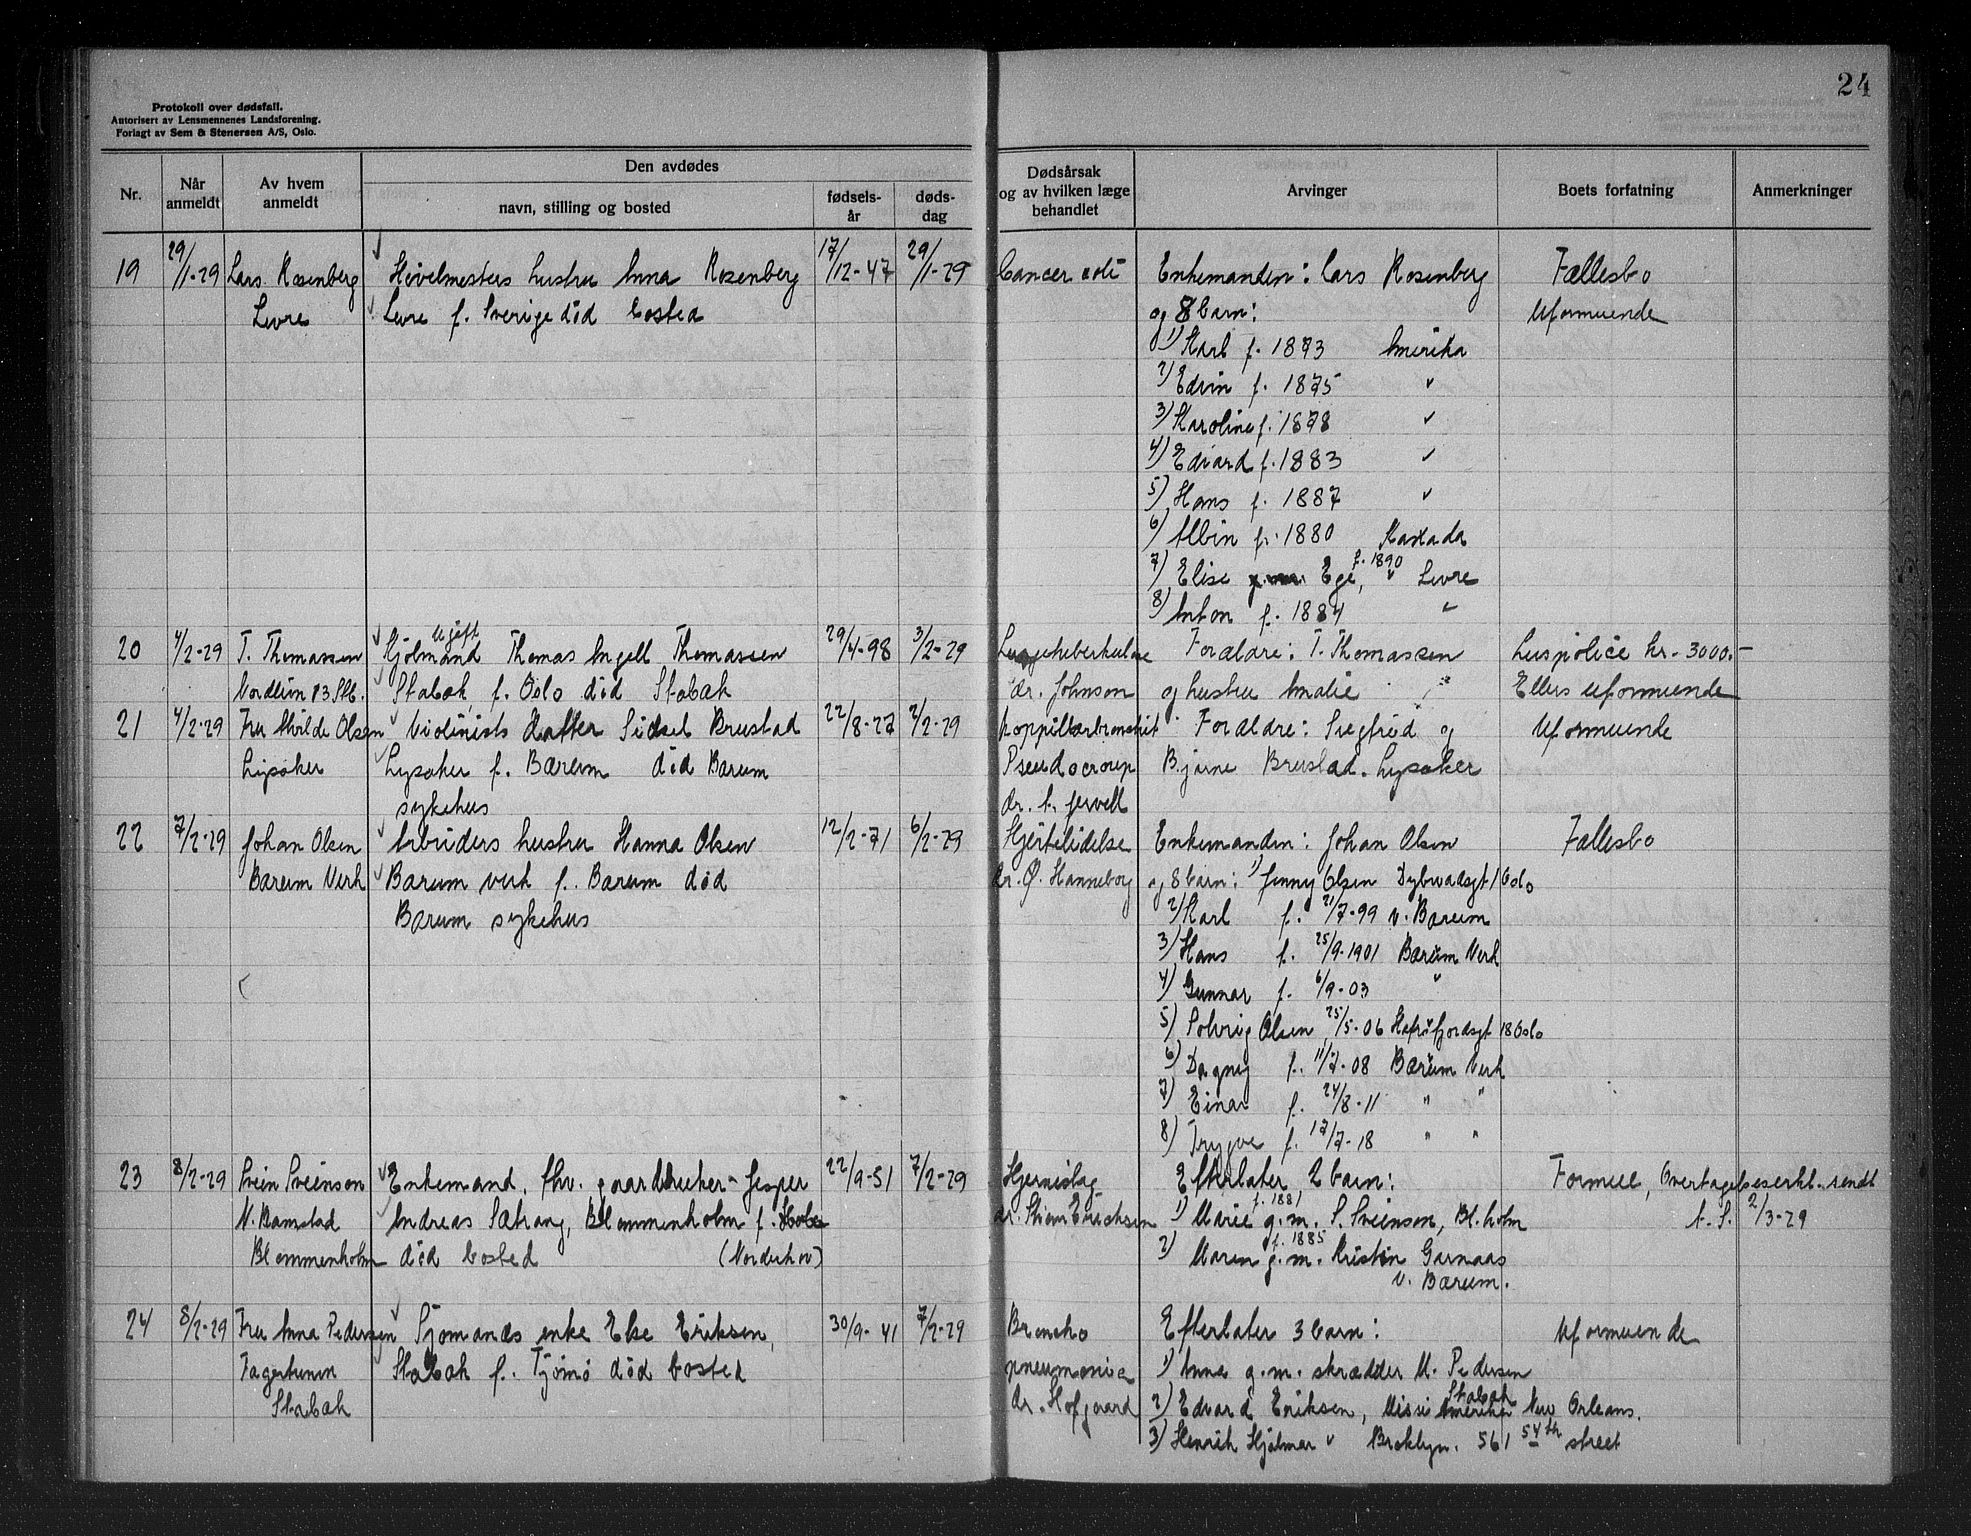 24
Protokoll over dødsfall.
Autorisert av Lensmennenes Landsforening.
Forlagt av Sem & Stenersen A/S, Oslo.
Nr. Når anmeldt Av hvem anmeldt Den avdødes navn, stilling og bosted fødsels-år døds-dag Dødsårsak og av hvilken læge behandlet Arvinger Boets forfatning Anmerkninger
19 29/1-29 Lars Rosenberg Hövelmesters hustru Anna Rosenberg 17/12-47 29/1-29 Cancer coli Enkemanden: Lars Rosenberg Fællesbo
Levre Levre f. Sverige död bosted og 8 barn: Uformuende
1) Karl f. 1873 Amerika
2) Edvin f. 1875 "
3) Karoline f. 1878 "
4) Edvard f. 1883 "
5) Hans f. 1887 "
6) Albin f. 1880 Kanada
7) Elise Ege, f. 1890 Levre
8) Anton f. 1884 "
20 4/2-29 T. Thomassen Ugift Thomas Ingell Thomassen 29/4-98 3/2-29 Lungetuberkulose Forældre: T. Thomassen Livspolice kr. 3000.-
Nordlien 13 Stb. Stabæk f. Oslo död Stabæk dr. Johnson og hustru Amalie " Ellers uformuende
21 4/2-29 Fru Alvilde Olsen Violinists datter Sidsel Brustad 22/8-27 2/2-29 Forældre: Siegfried og Uformuende
Lysaker Lysaker f. Bærum död Bærum Pseudocroup Bjarne Brustad. Lysaker
sykehus dr. A. Jervell
22 7/2-29 Johan Olsen Arbeiders hustru Hanna Olsen 12/2-71 6/2-29 Hjertelidelse Enkemanden: Johan Olsen Fællesbo
Bærum Verk Bærum verk f. Bærum död dr. Ø. Hanneborg og 8 barn: 1) Jenny Olsen Dybwadsgt 1 Oslo
Bærum sykehus 2) Karl f. 21/7-99 v. Bærum
3) Hans f. 25/9-1901 Bærum Verk
4) Gunnar f. 6/9-03 "
5) Solveig Olsen 25/5-06 Hafrsfjordsgt 18 Oslo
6) Dagny f. 11/7-08 Bærum Verk
7) Einar f. 24/8-11 " "
8) Trygve f. 17/7-18 " "
23 8/2-29 Svein Sveinson Enkemand, fhv. gaardbruker Jesper 22/9-51 7/2-29 Hjerneslag Efterlater 2 barn: Formue, Overtagelseserkl. sendt
N. Ramstad Andreas Sætrang, Blommenholm f. Hole dr. Thiem Erichsen 1) Marie f. 1881 g.m. S. Sveinson, Bl.holm A.S. 2/3-29
Blommenholm död bosted (Norderhov) 2) Maren f. 1885 g.m. Kristen Gurnaas
v. Bærum.
24 8/2-29 Fru Anna Pedersen Sjömands enke Else Eriksen, 30/9-41 7/2-29 Broncho Efterlater 3 barn: Uformuende
Fagertunvn Stabæk f. Tjömö död bosted pneumonie 1) Anna g.m. skrædder M. Pedersen
Stabæk
Stabæk dr. Hofgaard 2) Edvard Eriksen, Amerika New Orleans.
3) Henrik Hjalmar " Broklyn. 561 54th street